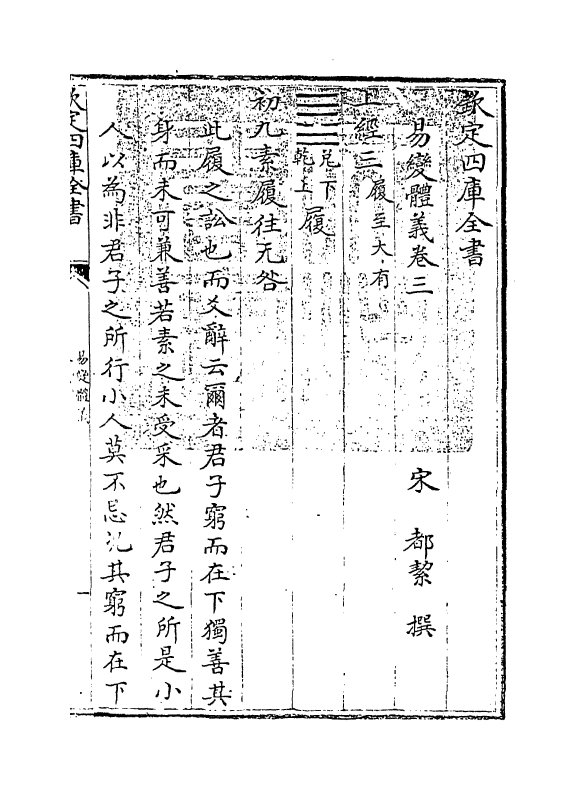 欽定四庫全書
易變體義卷三
宋 都絜 撰
上經三 履至大有
䷉ 兌下乾上 履
初九素履往无咎
此履之訟也而爻辭云爾者君子窮而在下獨善其
身而未可兼善若素之未受采也然君子之所是小
人以為非君子之所行小人莫不忌況其窮而在下
欽定四庫全書
易變體義
一